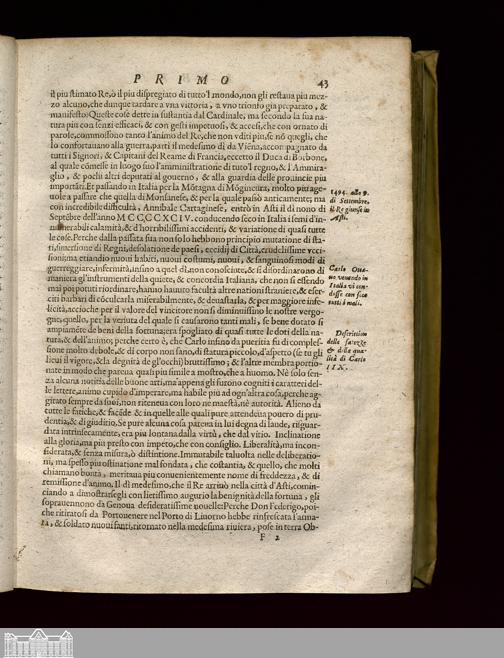 PRIMO 43
il piu stimato Re, ò il piu dispregiato di tutto'l mondo, non gli restaua piu mez-
zo alcuno, che dunque tardare a vna vittoria, a vno trionfo gia preparato, &
manifesto: Queste cose dette in sustantia dal Cardinale, ma secondo la sua na-
tura piu con sensi efficaci, & con gesti impetuosi, & accesi, che con ornato di
parole, commossono tanto l'animo del Re, che non vditi piu, se nõ quegli, che
lo confortauano alla guerra, partì il medesimo dì da Viẽna, accompagnato da
tutti i Signori, & Capitani del Reame di Francia, eccetto il Duca di Borbone,
al quale cõmesse in luogo suo l'amministratione di tutto'l regno, & l'Ammira-
glio, & pochi altri deputati al gouerno, & alla guardia delle prouincie piu
importãti. Et passando in Italia per la Mõtagna di Mõgineura, molto piu age-
uole a passare che quella di Monsanese, & per la quale passò anticamente; ma
con incredibile difficultà, Annibale Cartaginese, entrò in Asti il dì nono di
Settẽbre dell'anno MCCCCXCIV. conducendo seco in Italia i semi d'in-
numerabili calamità, & d'horribilissimi accidenti, & variatione di quasi tutte
le cose. Perche dalla passata sua non solo hebbono principio mutatione di sta-
ti, suuersione di Regni, desolatione de paesi, eccidij di Città, crudelissime vcci-
sioni; ma etiandio nuoui habiti, nuoui costumi, nuoui, & sanguinosi modi di
guerreggiare, infermità, insino a quel dì, non conosciute, & si disordinarono di
maniera gl'instrumenti della quiete, & concordia Italiana, che non si essendo
mai poi potuti riordinare, hanno hauuto facultà altre nationi straniere, & eser-
citi barbari di cõculcarla miserabilmente, & deuastarla, & per maggiore infe-
licità, accioche per il valore del vincitore non si diminuissino le nostre vergo-
gne, quello, per la venuta del quale si causarono tanti mali, se bene dotato sì
ampiamẽte de beni della fortuna, era spogliato di quasi tutte le doti della na-
tura, & dell'animo; perche certo è, che Carlo insino da pueritia fu di comples-
sione molto debole, & di corpo non sano, di statura piccolo, d'aspetto (se tu gli
lieui il vigore, & la degnità de gl'occhi) bruttissimo; & l'altre membra portio-
nate in modo che pareua quasi piu simile a mostro, che a huomo. Nè solo sen-
za alcuna notitia delle buone arti, ma appena gli furono cogniti i caratteri del-
le lettere, animo cupido d'imperare, ma habile piu ad ogn'altra cosa, perche ag-
girato sempre da suoi, non riteneua con loro ne maestà, nè autorità. Alieno da
tutte le fatiche, & facẽde & in quelle alle quali pure attendeua pouero di pru-
dentia, & di giuditio. Se pure alcuna cosa pareua in lui degna di laude, risguar-
data intrinsecamente, era piu lontana dalla virtù, che dal vitio. Inclinatione
alla gloria, ma piu presto con impeto, che con consiglio. Liberalità, ma incon-
siderata, & senza misura, ò distintione. Immutabile taluolta nelle deliberatio-
ni, ma spesso piu ostinatione mal fondata, che costantia, & quello, che molti
chiamano bontà, meritaua piu conuenientemente nome di freddezza, & di
remissione d'animo. Il dì medesimo, che il Re arriuò nella città d'Asti, comin-
ciando a dimostrarsegli con lietissimo augurio la benignità della fortuna, gli
soprauennono da Genoua desideratissime nouelle: Perche Don Federigo, poi-
che ritiratosi da Portouenere nel Porto di Liuorno hebbe rinfrescata l'arma-
ta, & soldato nuoui fanti, ritornato nella medesima riuiera, pose in terra Ob-
F 2
1494. alli 9.
di Settembre,
il Re giunse in
Asti.
Carlo Otta-
uo venendo in
Italia vi con-
dusse con seco
tutti i mali.
Descrittion
delle fattezze
& delle qua-
lità di Carlo
IIX.